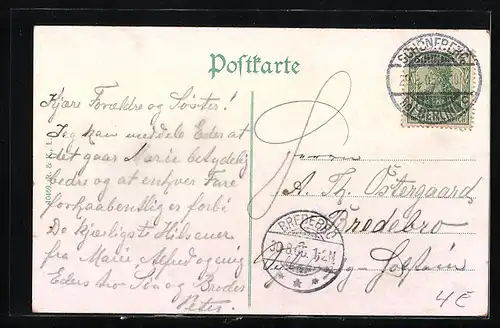 Postkarte
SCHÖNEBERG
(BZ. BERLIN)
Kjære Forældre og Søster!
Jeg kan meddele Eder at
det gaar Marie betydelig
bedre og at enhver Fare
forhaabentlig er forbi
De kjærligste Hilsener
fra Marie Alfred og mig
Eders tro Søn og Broder
Peter.
Herrn
A. Th. Östergaard
Bredebro
Holstein
BREDEBRO
30.8.
4 E